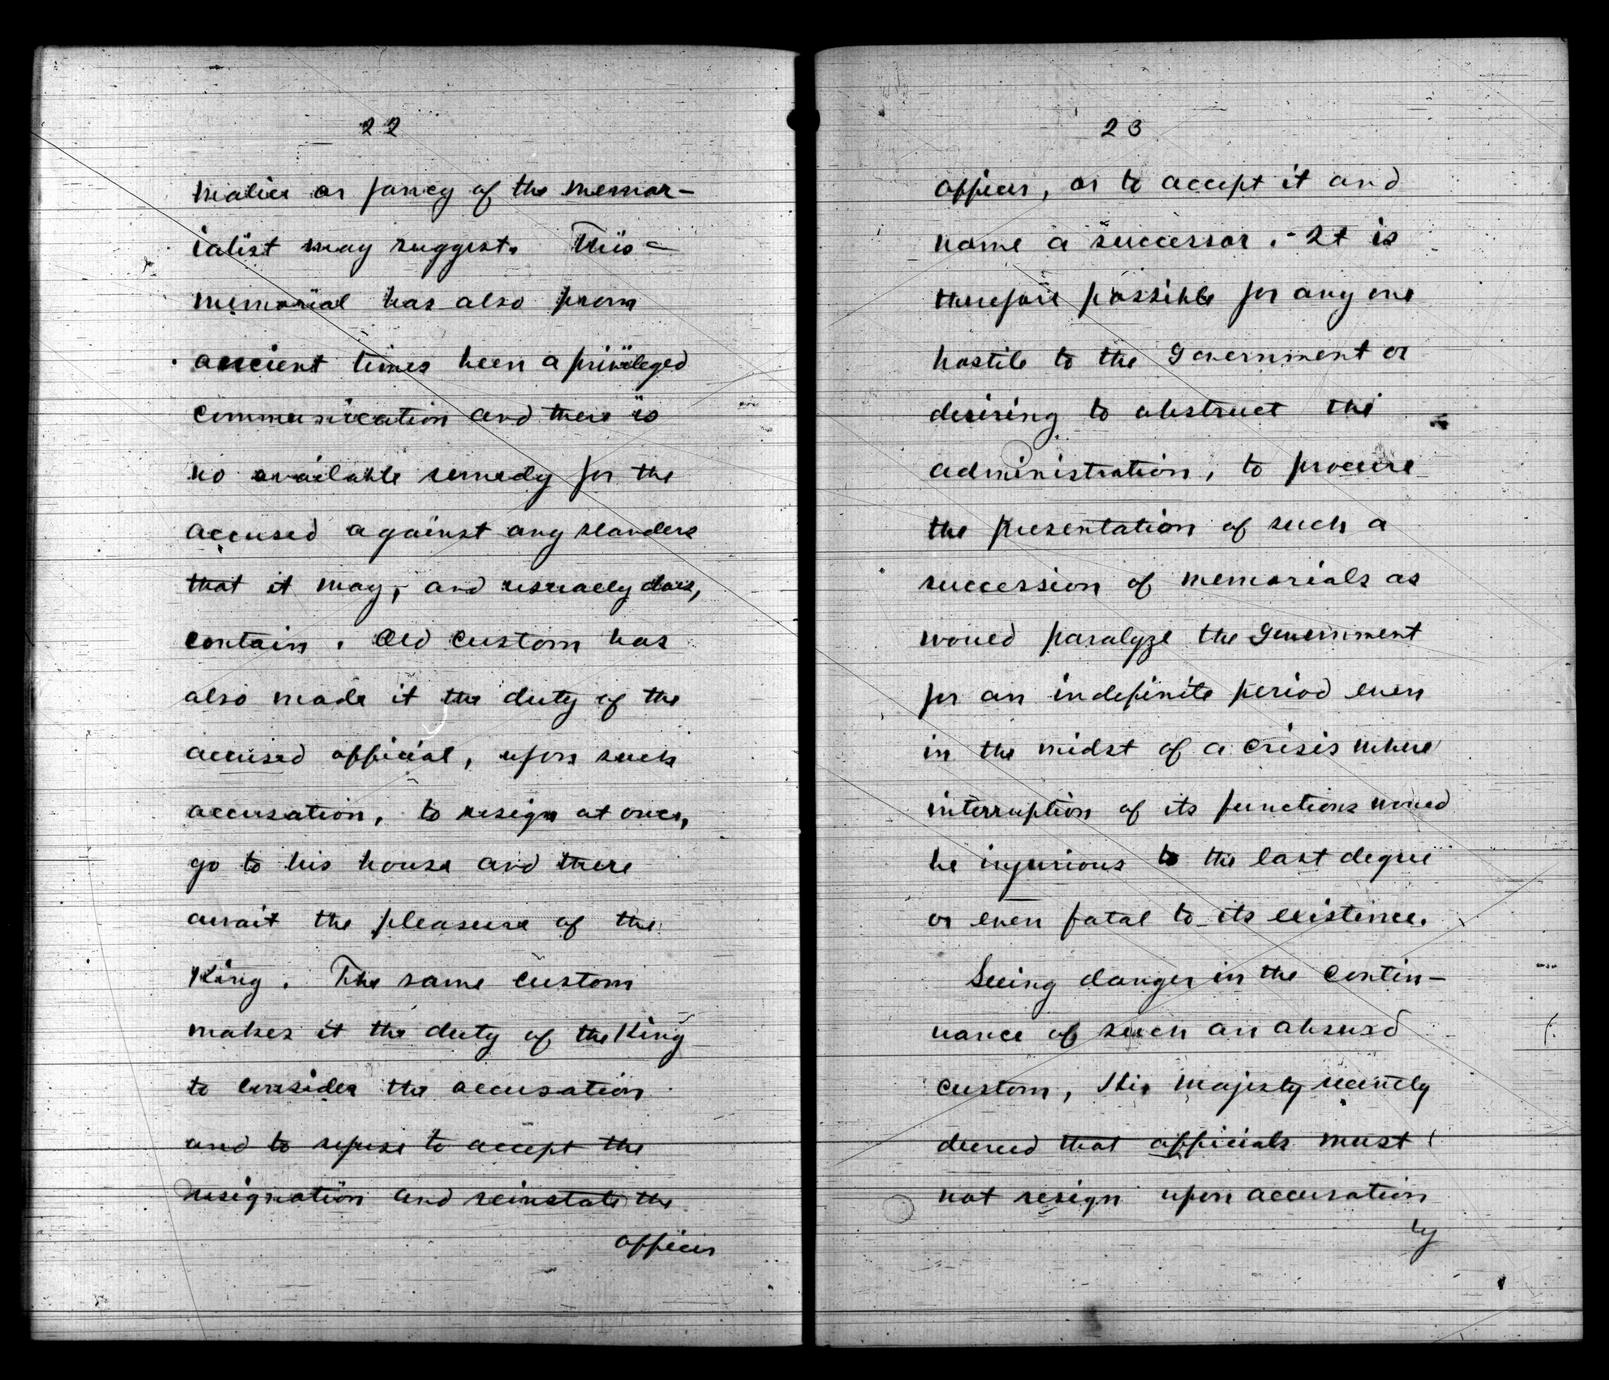 22
malice or fancy of the memor-
ialist may suggest. This
memorial has also from
ancient times been a privileged
communication and there is
no available remedy for the
accused against any slanders
that it may, and usually does,
contain. Old custom has
also made it the duty of the
accused official, upon such
accusation, to resign at once,
go to his house and there
await the pleasure of the
King. The same custom
makes it the duty of the King
to consider the accusation
and to refuse to accept the
resignation and reinstate the
officer
23
officer, or to accept it and
name a successor. - It is
therefore possible for any one
hostile to the Government or
desiring to obstruct the
administration, to procure
the presentation of such a
succession of memorials as
would paralyze the Government
for an indefinite period even
in the midst of a crisis where
interruption of its functions would
be injurious to the last degree
or even fatal to its existence.
Seeing danger in the contin-
uance of such an absurd
custom, His Majesty recently
decreed that officials must
not resign upon accusation
by